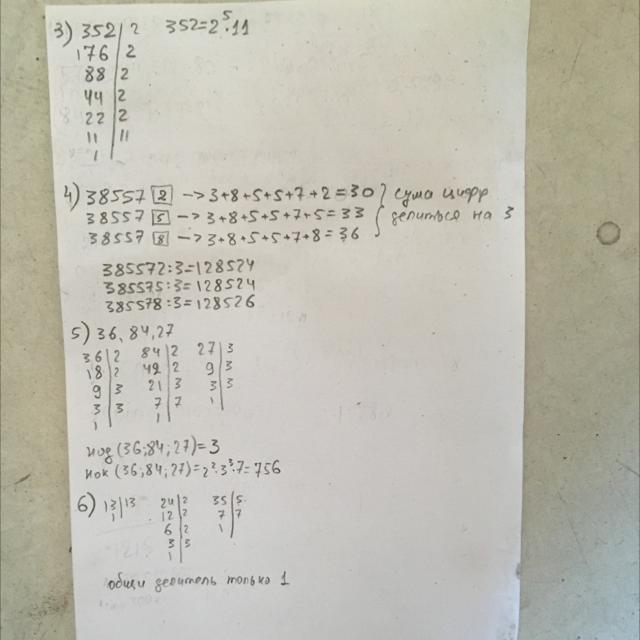 3) 352 | 2 352=2⁵·11
176 | 2
88 | 2
44 | 2
22 | 2
11 | 11
1
4) 38557 [2] → 3+8+5+5+7+2=30 } сума цифр
38557 [5] → 3+8+5+5+7+5=33 делиться на 3
38557 [8] → 3+8+5+5+7+8=36
385572:3=128524
385575:3=128524
385578:3=128526
5) 36, 84, 27
36 | 2 84 | 2 27 | 3
18 | 2 42 | 2 9 | 3
9 | 3 21 | 3 3 | 3
3 | 3 7 | 7 1
1 1
нод (36;84;27)=3
нок (36;84;27)=2²·3³·7=756
6) 13 | 13 24 | 2 35 | 5
1 12 | 2 7 | 7
6 | 2 1
3 | 3
1
общи делитель только 1